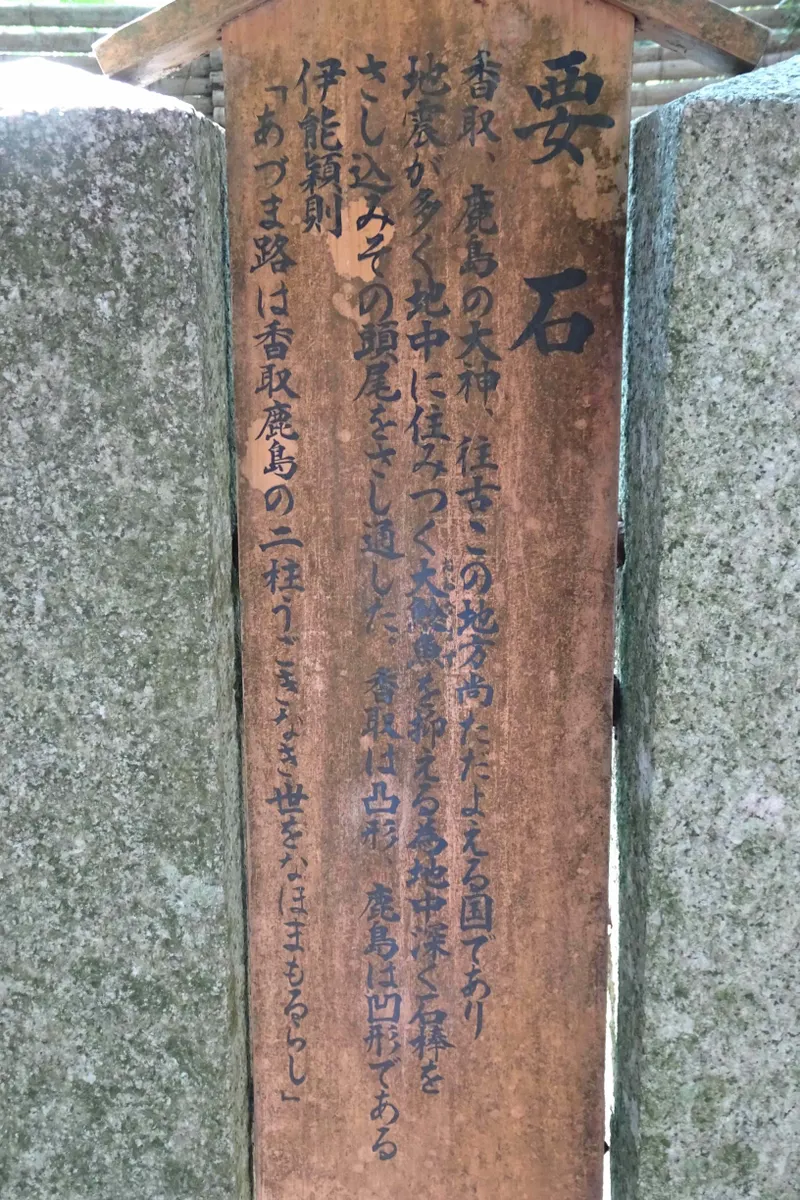 要石
香取、鹿島の大神、往古この地方尚たたよえる国であり
地震が多く地中に住みつく大鯰魚を抑える為地中深く石棒を
さし込みその頭尾をさし通した。香取は凸形、鹿島は凹形である
伊能穎則
「あづま路は香取鹿島の二柱うごきなき世をなほまもるらし」